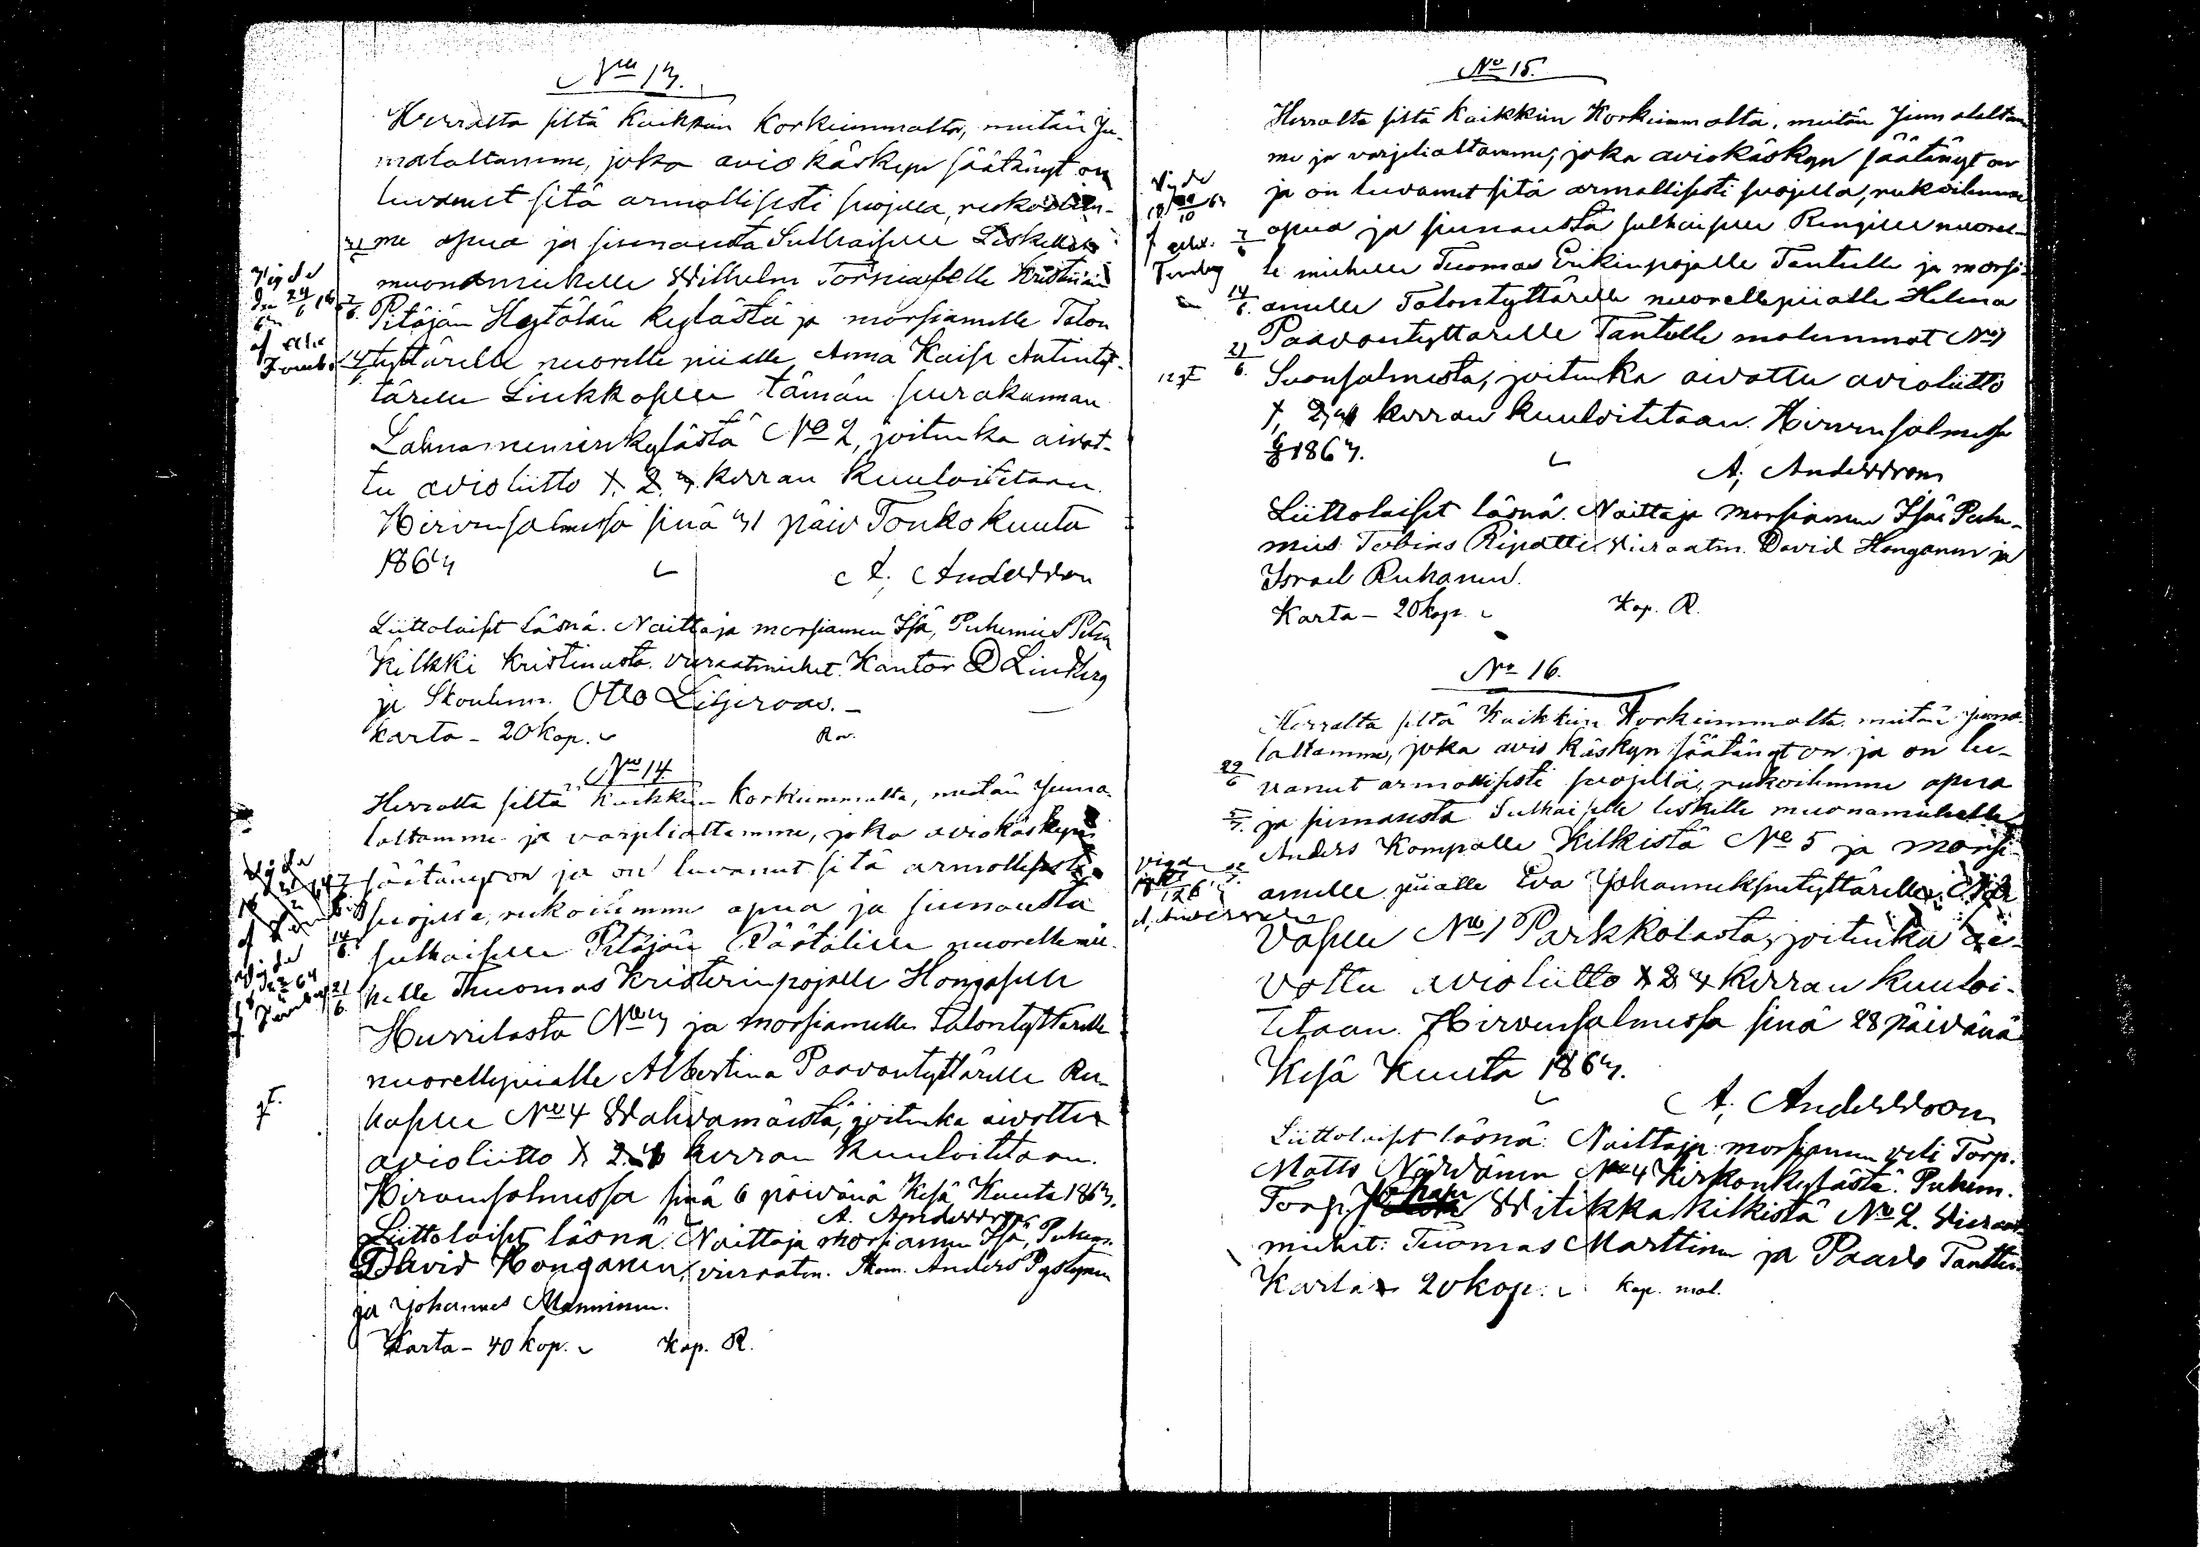 No 13.
Herralta siltä Kaikkiin Korkeimmalta, meitän Ju-
malaltamme, joka avio käskyn säätänyt on
luvannut sitä armollisesti suojella, rukoilem-
31 me apua ja siunausta Sulhaiselle Leskelle
muonamiehelle Wilhelm Torniaselle Kristiinan
7/6. Pitäjän Heytölän kylästä ja morsiamelle Talon
14/6 tyttärelle nuorelle piialle Anna Kaisa Antinty-
tärelle Liukkoselle tämän seurakunnan
Lahnaniemenkylästä No 2, joitenka aivot-
tu avioliitto 1. 2. 3. kerran kuuloitetaan.
Hirvensalmessa sinä 31 päiv Toukokuuta
1863
A; Andersson
Vigde
den 24/6
63
af
Liittolaiset läsnä. Naittaja morsiamen Isä, Puhemies Peter
Kilkki Kristinasta. vieraatmiehet. Kantor D Lindberg
ja Skoulum. Otto Liljeroos. –
Karta – 20 kop.
No 14.
Herralta siltä Kaikkiin Korkeimmalta, meitän Juma-
laltamme ja varjeliattamme, joka aviokäskyn
säätänyt on ja on luvannut sitä armollisesti
suojella, rukoilemme apua ja siunausta
14/6. sulhaiselle Pitäjän Räätälille nuorellemie-
21/6. helle Thuomas Kristerinpojalle Hongaselle
Hurrilasta No 3 ja morsiamelle Talontyttärelle
nuorellepiialle Albertina Paavontyttärelle Ru-
haselle No 4 Wahvamäistä, joitenka aivottu
avioliitto 1. 2. 3. kerran kuuloitetaan.
Hirvensalmessa sinä 6 päivänä Kesä Kuuta 1863.
A. Andersson
Vigde
Liittolaiset läsnä. Naittaja morsiamen Isä, Puhem.
David Honganen, vieraatm. Anders Pystynen
ja Johannes Manninen.
Karta – 40 kop. Kop. R.
No 15.
Herralta siltä Kaikkiin Korkeimmalta, meitän Jumalaltam-
me ja varjelialtamme, joka aviokäskyn säätänyt on
ja on luvannut sitä armollisesti suojella, rukoilemme
7/6 apua ja siunausta sulhaiselle Rengille nuorel-
le miehelle Tuomas Erikinpojalle Tantulle ja morsi-
14/6. amelle Talontyttärelle nuorellepiialle Helena
Paavontyttärelle Tantulle molemmat No 1
21/6. Suonsalmesta, joitenka aivottu avioliitto
1, 2, 3 kerran kuuloitetaan. Hirvensalmessa
6/6 1863.
A; Andersson
Vigde
Liittolaiset läsnä. Naittaja morsiamen Isä Puhe-
mies Tobias Ripatti. Vieraatm. David Honganen ja
Israel Ruhanen.
Karta – 20 kop. Kop. R.
No 16.
Herralta siltä Kaikkiin Korkeimmalta meitän Juma-
laltamme, joka avio käskyn säätänyt on ja on lu-
29/6 vannut armollisesti suojella, rukoilemme apua
5/7. ja siunausta Sulhaiselle leskelle muonamiehelle
Anders Kompalle Kilkistä No 5 ja morsi-
amelle piialle Eva Johanneksentyttärelle
vaselle No 1 Parkkolasta, joitenka ai-
vottu avioliitto 1 2 3 kerran kuuloi-
tetaan. Hirvensalmessa sinä 28 päivänä
Kesä Kuuta 1863.
A; Andersson
Liittolaiset läsnä: Naittaja morsiamen veli Torp.
Matts Närvänen No 4 Kirkonkylästä. Puhem.
Torp. Johan Witikka Kilkistä No 2. Vieraat
miehet: Tuomas Marttinen ja Paavo Tanttu.
Karta – 20 kop. Kop. mal.